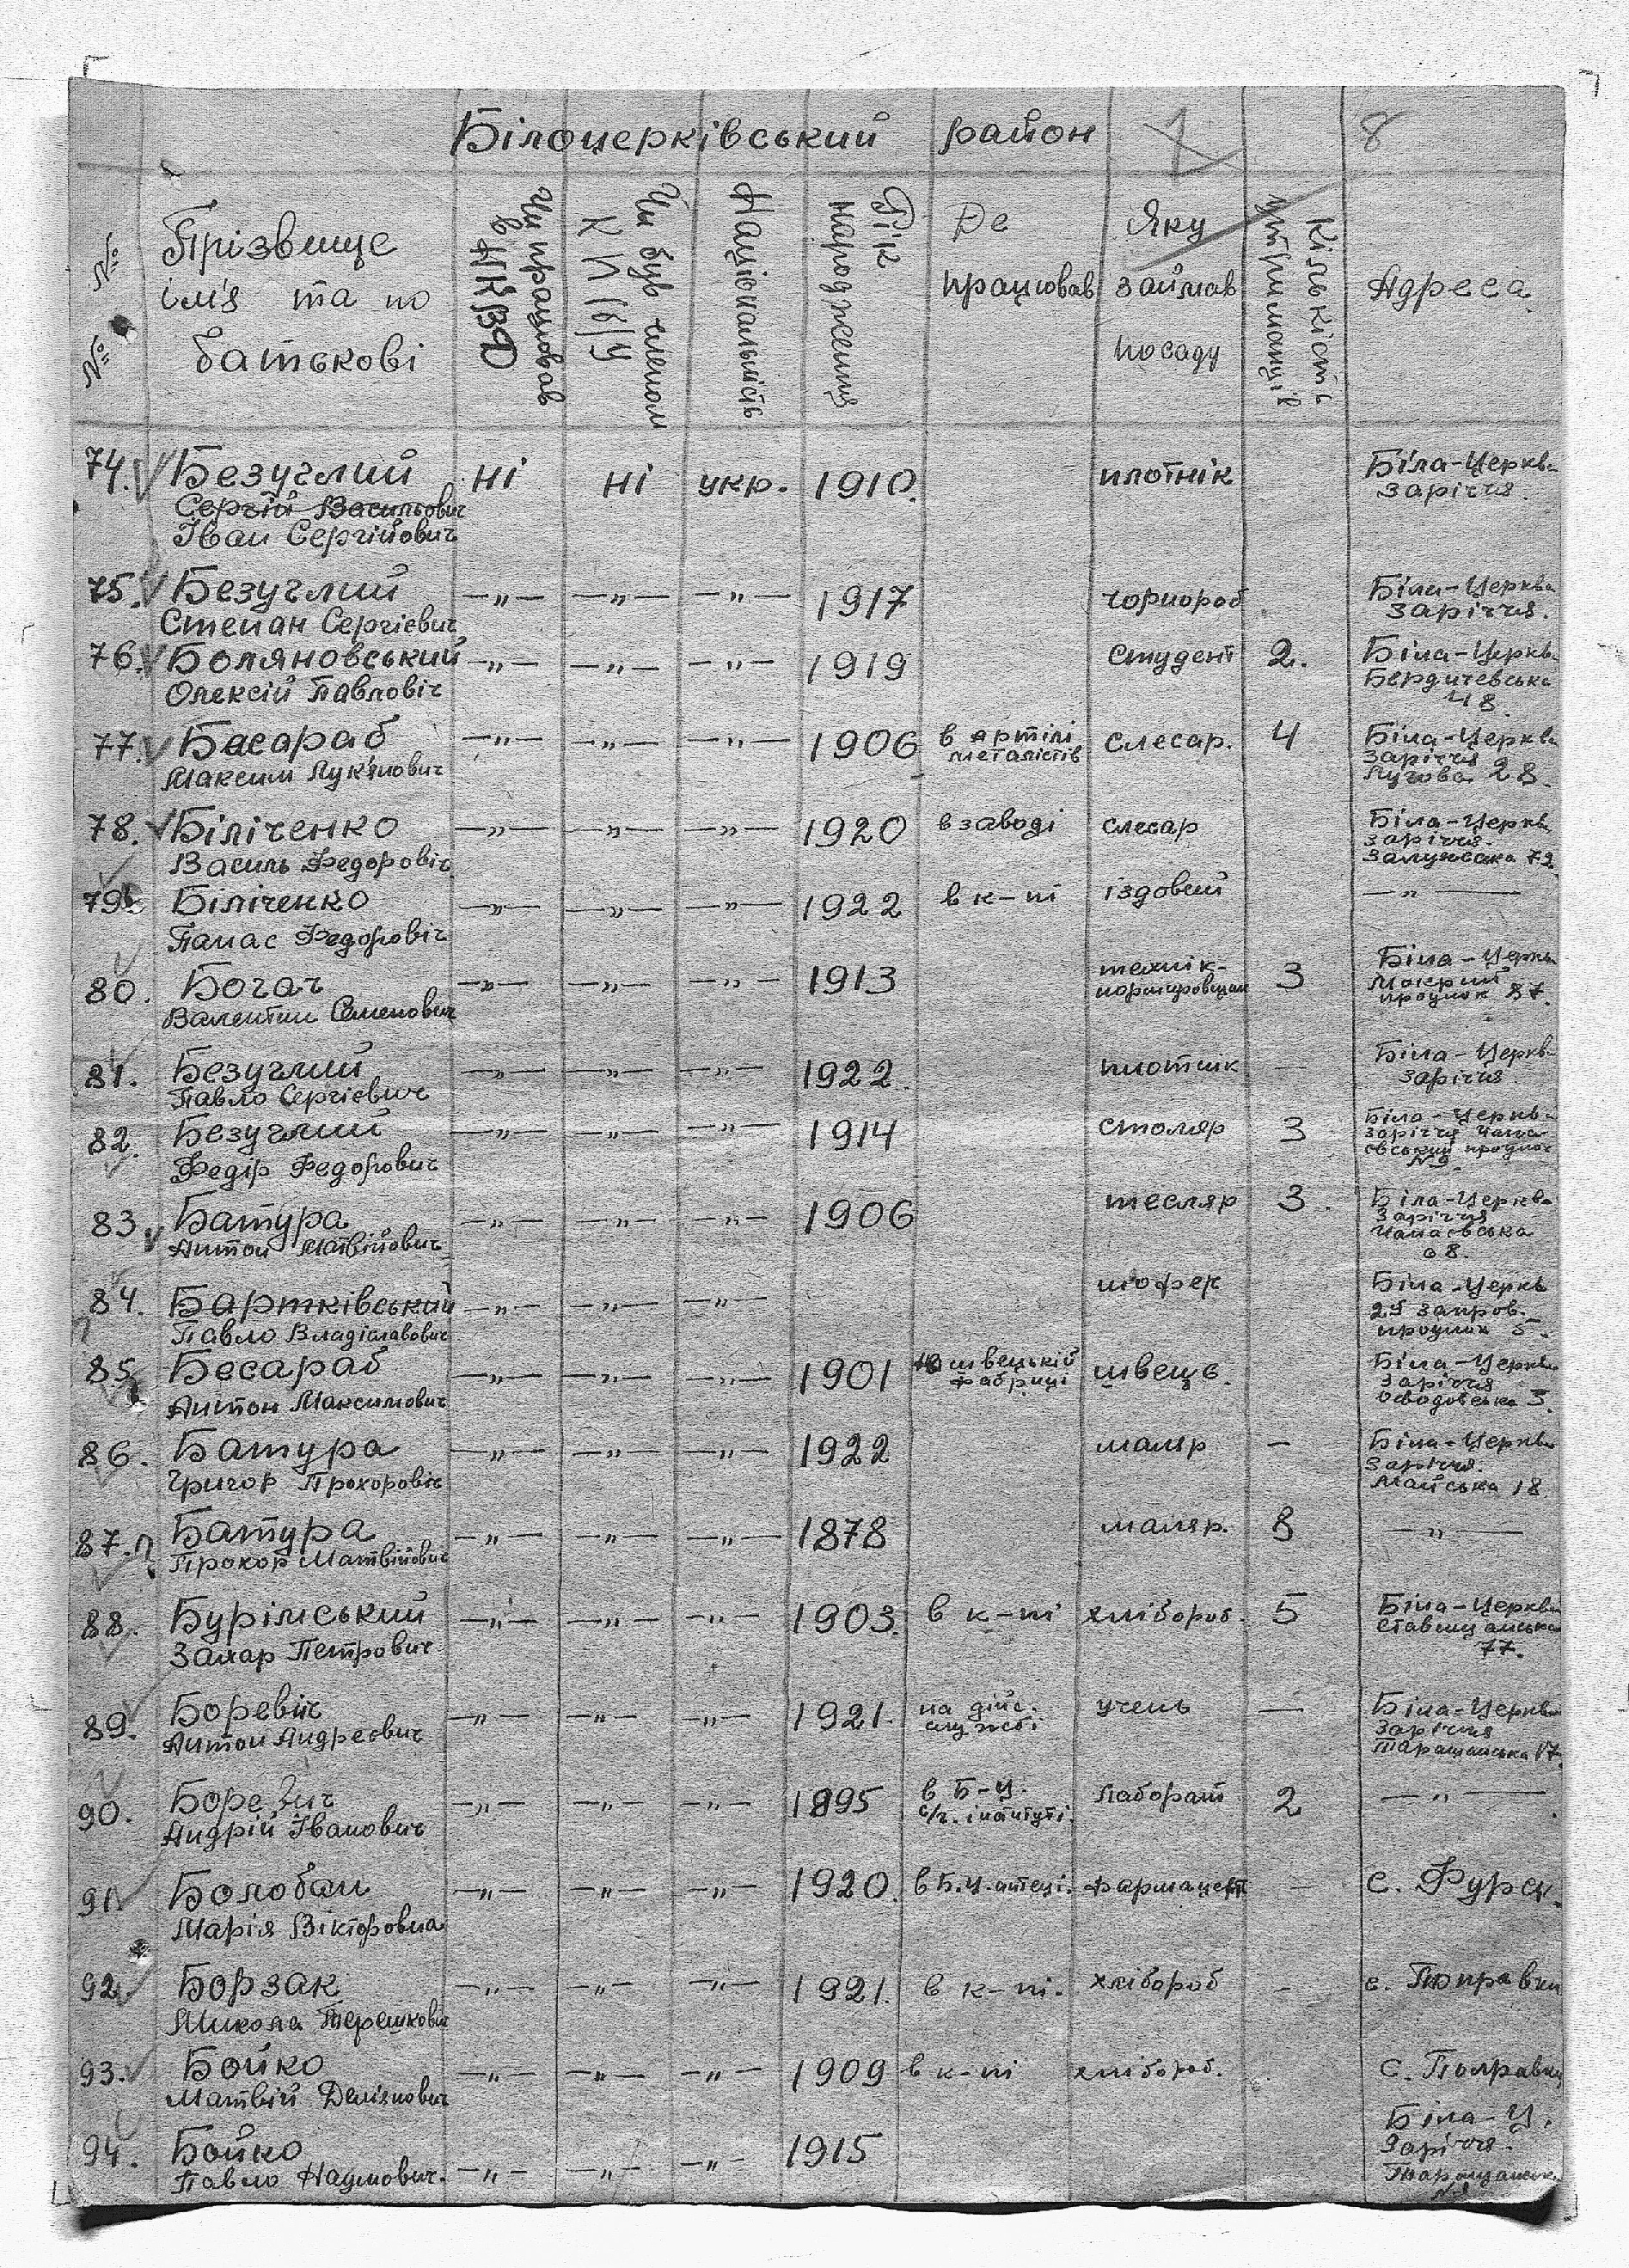 Білоцерківський район 1 8
№ №
Прізвище
ім'я та по
батькові
Чи працював
в НКВД
Чи був членом
К П(б)У
Національність
Рік
народження
Де
працював
Яку
займав
посаду
Кількість
утриманців
Адреса
74. Безуглий ні ні укр. 1910. плотнік Біла-Церква
Сергій Васильович Заріччя.
Іван Сергійович
75. Безуглий —„— —„— —„— 1917 чорнороб Біла-Церква
Степан Сергієвич Заріччя.
76. Боляновський —„— —„— —„— 1919 студент 2. Біла-Церква
Олексій Павловіч Бердичевська
48.
77. Басараб —„— —„— —„— 1906 в артілі слесар. 4 Біла-Церква
Максим Лук'янович металістів Заріччя
Лугова 28.
78. Біліченко —„— —„— —„— 1920 в заводі слесар Біла-Церква
Василь Федоровіч Заріччя.
72.
79. Біліченко —„— —„— —„— 1922 в к-пі їздовий —„—
Панас Федоровіч
80. Богач —„— —„— —„— 1913 технік- 3 Біла-Церква
Валентин Семенович Мокрий
87.
81. Безуглий —„— —„— —„— 1922. плотнік — Біла-Церква
Павло Сергієвич Заріччя
82. Безуглий —„— —„— —„— 1914 столяр 3 Біла-Церква
Федір Федорович Заріччя Чапа-
євський проулок
№ 9
83. Батура —„— —„— —„— 1906 тесляр 3. Біла-Церква
Антон Матвійович Заріччя
Чапаєвська
68.
84. Бартківський —„— —„— —„— шофер Біла-Церкв
Павло Владіславович проулок 5.
85. Бесараб —„— —„— —„— 1901 на швецькій швець. Біла-Церква
Антон Максимович фабриці Заріччя
3.
86. Батура —„— —„— —„— 1922 маляр — Біла-Церква
Григор Прохоровіч Заріччя.
Майська 18.
87. Батура —„— —„— —„— 1878 маляр. 8 —„—
Прохор Матвійович
88. Бурімський —„— —„— —„— 1903. в к-пі хлібороб. 5 Біла-Церква
Захар Петрович Ставищанська
77.
89. Боревіч —„— —„— —„— 1921. на дійс. учень — Біла-Церква
Антон Андреєвич службі Заріччя
Таращанська 17
90. Боревич —„— —„— —„— 1895 в Б-Ц. лаборант 2 —„—
Андрій Іванович с/г. інституті.
91. Болобан —„— —„— —„— 1920. в Б.Ц. аптеці. фармацевт — с. Фурси.
Марія Вікторовна
92. Борзак —„— —„— —„— 1921. в к-пі. хлібороб - с.
Микола Терешкович
93. Бойко —„— —„— —„— 1909 в к-пі хлібороб. с.
Матвій Демянович
94. Бойко —„— —„— —„— 1915 Біла-Ц.
Павло Наумович. Заріччя.
Таращанська